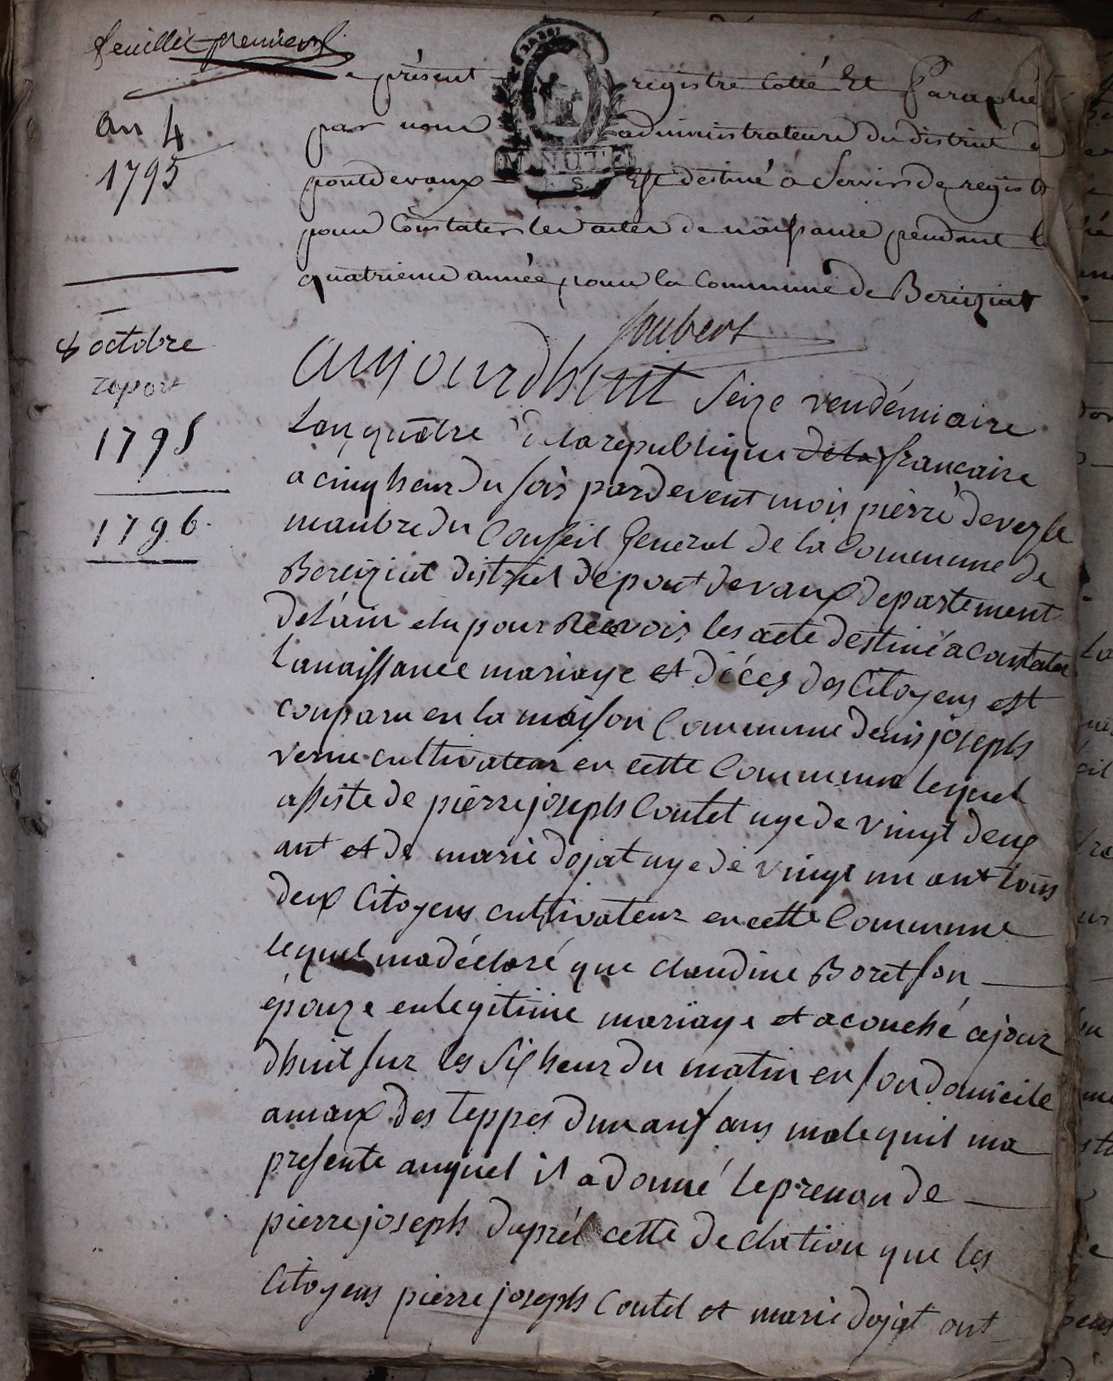 feuillet premier
an 4
1795
8 octobre
1795
1796
MINUTE
présent registre cotté Et Paraphé
par nous administrateurs du district d
pontdevaux Est destiné a Servir de regist
pour Constater les actes de naissance pendant l
quatrieme année pour la Commune de Bereiziat
Joubert
aujourdhuit Seize vendémiaire
Lan quatre de la republique de la francaise
a cinq heur du soir pardevent mois pierre devezle
manbre du Conseil General de la Commune de
Bereiziat district de pont devaux departement
delain elu pour recevois les acte destiné a constater
lanaissance mariage et déces des Citoyens est
conparu en la maison Commune denis joseph
verne cultivateur en cette Commune lequel
assiste de pierre joseph Coutet age de vingt deux
ant et de marie dojat age de vingt un ant tous
deux Citoyens cultivateur en cette Commune
lequel madéclaré que claudine Boret son
épouze en legitime mariage et acouché ajour
dhuit sur les six heur du matin en son domicile
amax des teppes dun anfans male quil ma
presente auquel il a donné le prenon de
pierre joseph daprél cette declation que les
Citoyens pierre joseph Coutet et marie dojat ont